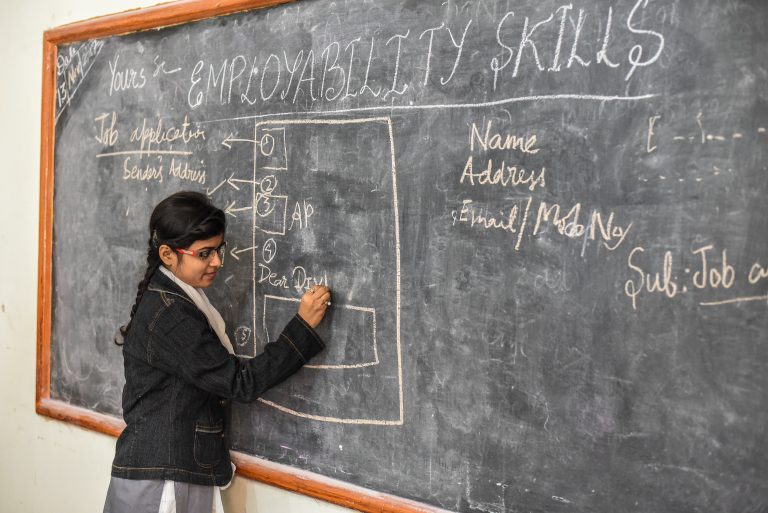 Date
13
Yours
EMPLOYABILITY SKILLS
Job application
Sender's Address
1
2
3
AP
4
Dear
5
Name
Address
Email/Mob No
Sub: Job